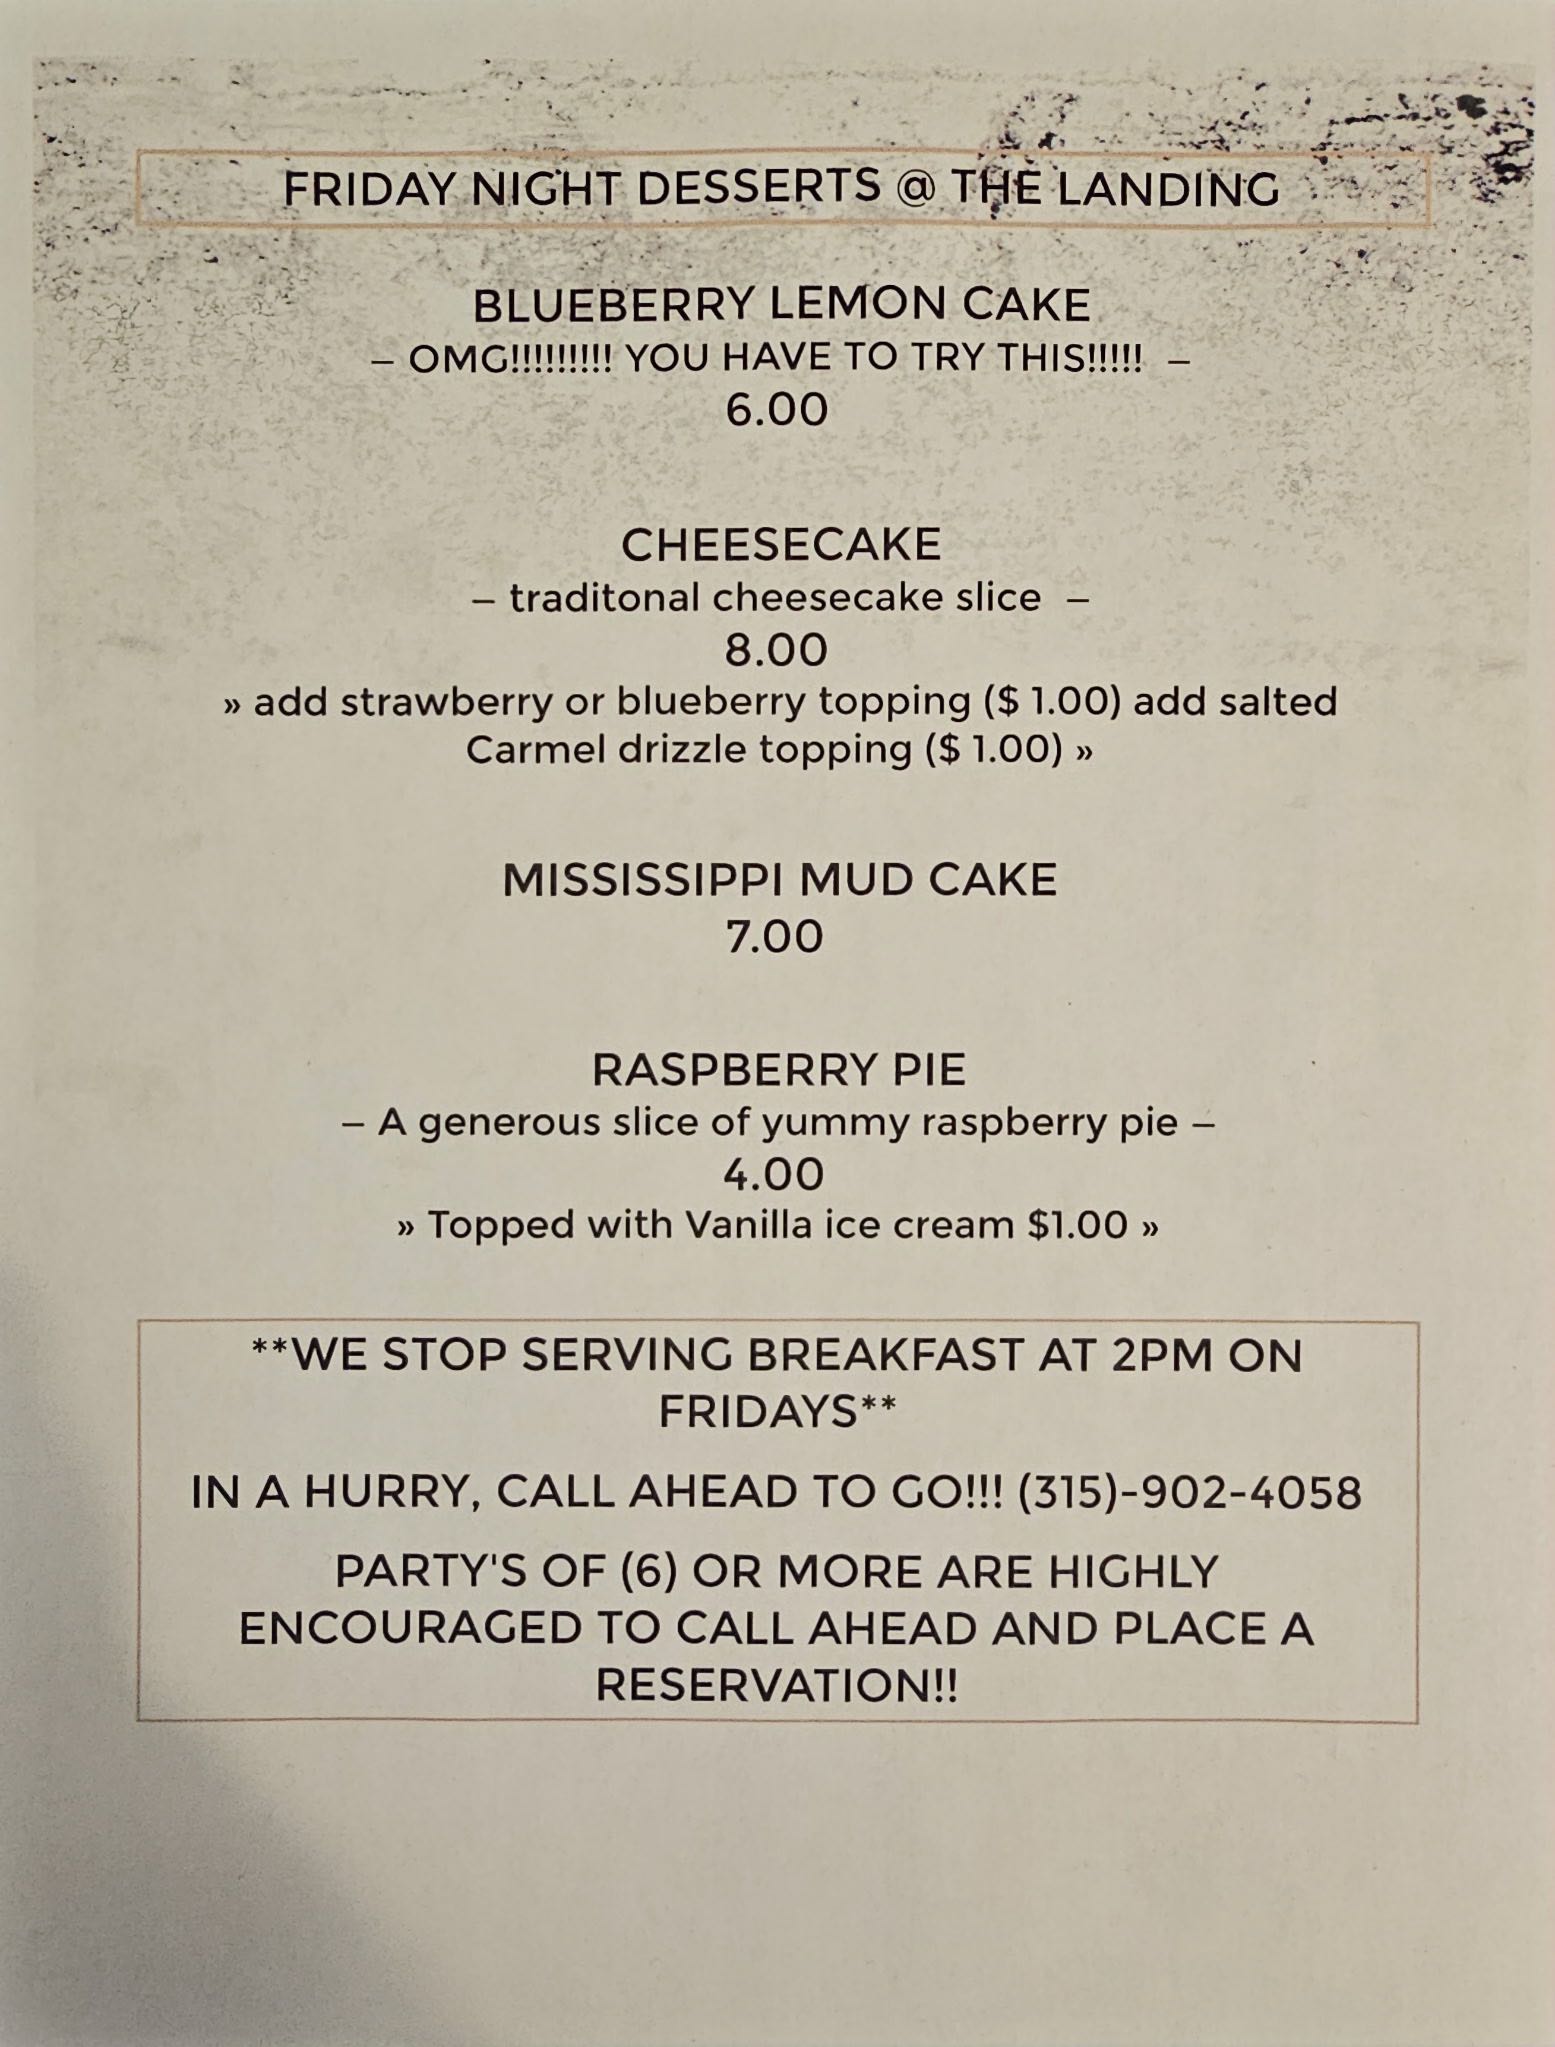 FRIDAY NIGHT DESSERTS @ THE LANDING
BLUEBERRY LEMON CAKE
– OMG!!!!!!!!! YOU HAVE TO TRY THIS!!!!! –
6.00
CHEESECAKE
– traditonal cheesecake slice –
8.00
» add strawberry or blueberry topping ($ 1.00) add salted
Carmel drizzle topping ($ 1.00) »
MISSISSIPPI MUD CAKE
7.00
RASPBERRY PIE
– A generous slice of yummy raspberry pie –
4.00
» Topped with Vanilla ice cream $1.00 »
**WE STOP SERVING BREAKFAST AT 2PM ON
FRIDAYS**
IN A HURRY, CALL AHEAD TO GO!!! (315)-902-4058
PARTY'S OF (6) OR MORE ARE HIGHLY
ENCOURAGED TO CALL AHEAD AND PLACE A
RESERVATION!!